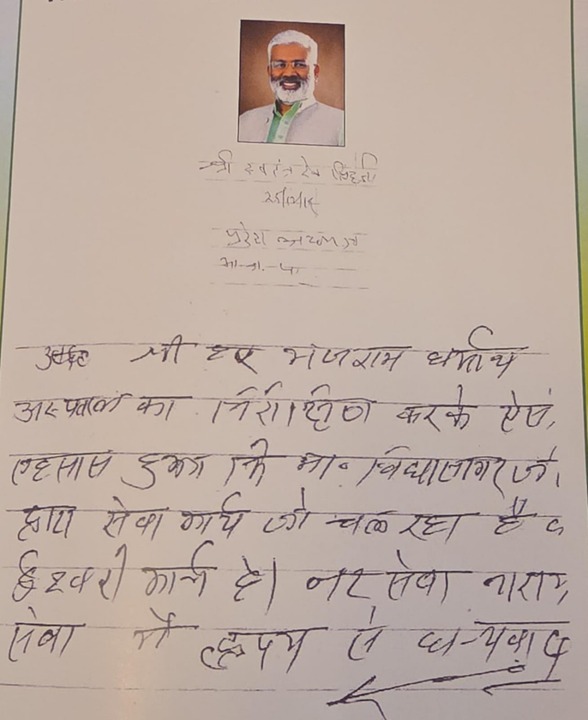 श्री स्वतंत्र देव सिंह जी
प्रदेश अध्यक्ष
भा.ज.पा
श्री हर भजराम धर्मार्थ
अस्पताल का निरीक्षण करके ऐसा
एहसास हुआ कि मा० विद्यासागर जी
द्वारा सेवा कार्य जो चल रहा है व
ईश्वरी कार्य है। नर सेवा नाराय
सेवा में हृदय से धन्यवाद